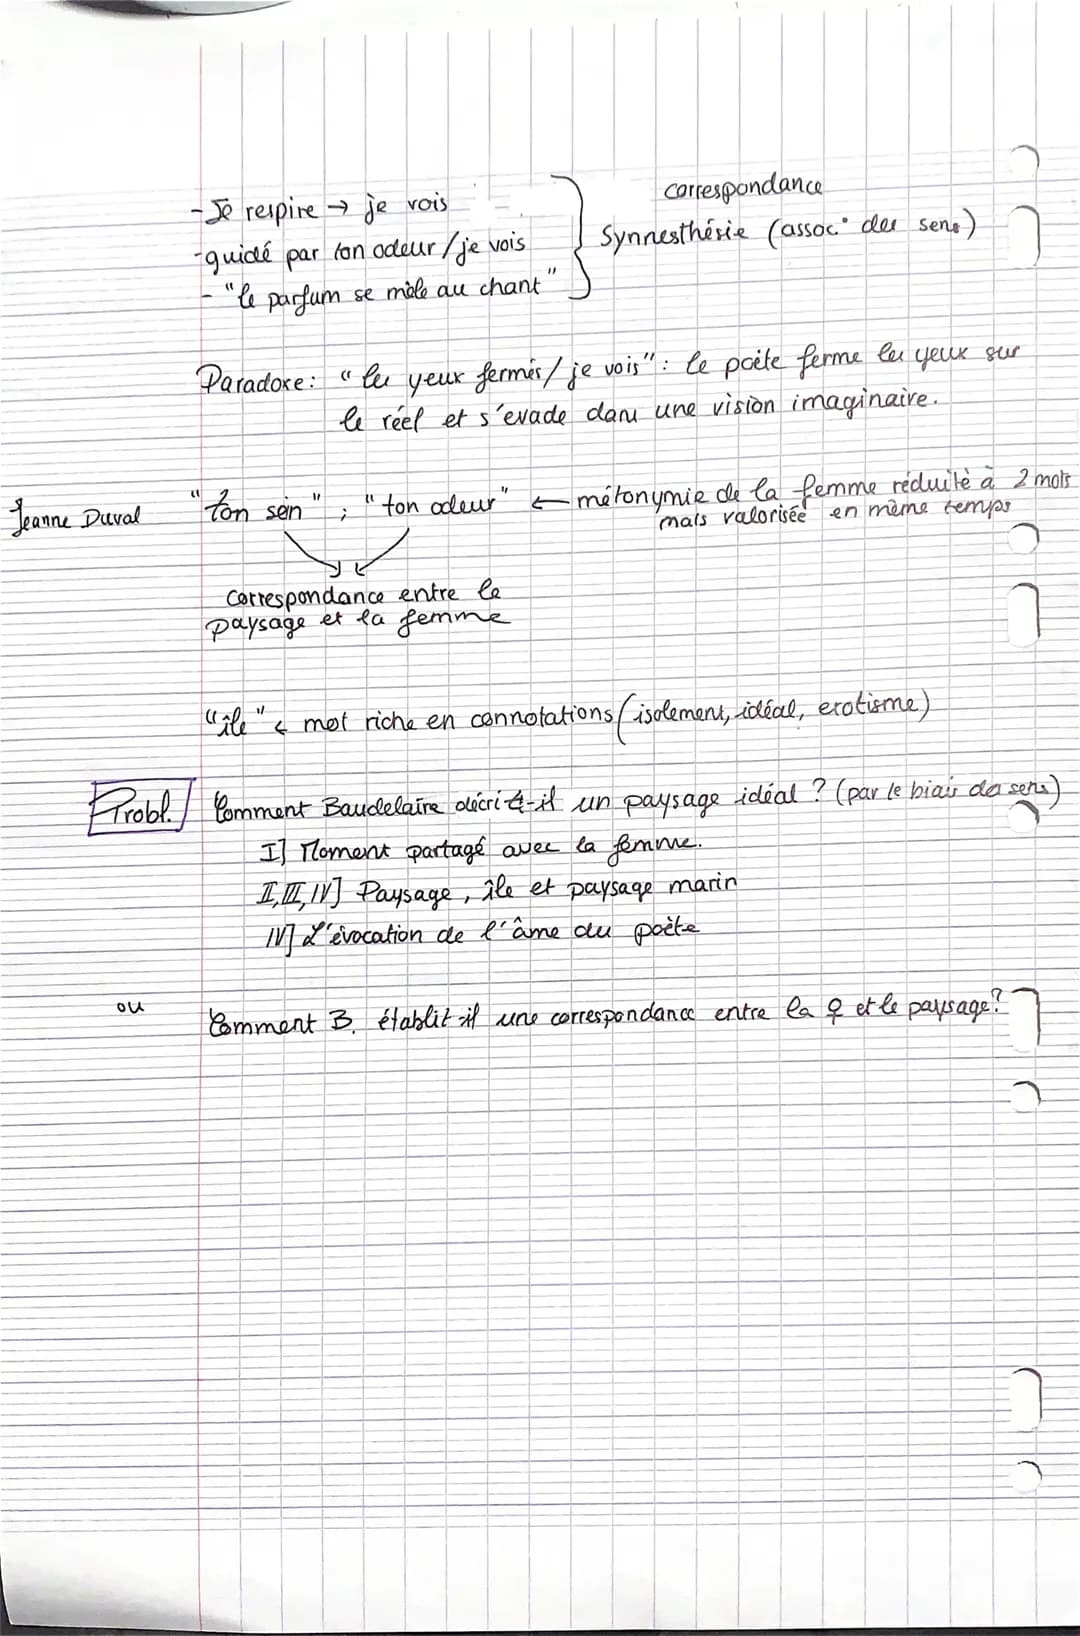 - Je respire → je vois
- guidé par ton odeur / je vois
- "le parfum se mêle au chant"
correspondance
Synnesthésie (assoc° des sens)
Paradoxe : "les yeux fermés / je vois" : le poète ferme les yeux sur
le réel et s'evade dans une vision imaginaire.
Jeanne Duval
"ton sein" ; "ton odeur" ← métonymie de la femme réduite à 2 mots
mais valorisée en même temps
Correspondance entre le
paysage et la femme
"île" ← mot riche en connotations (isolement, idéal, erotisme)
Probl. Comment Baudelaire décrit-il un paysage idéal ? (par le biais des sens)
I] Moment partagé avec la femme.
II, III, IV] Paysage, île et paysage marin
IV] L'évocation de l'âme du poète
ou
Comment B. établit-il une correspondance entre la ♀ et le paysage?